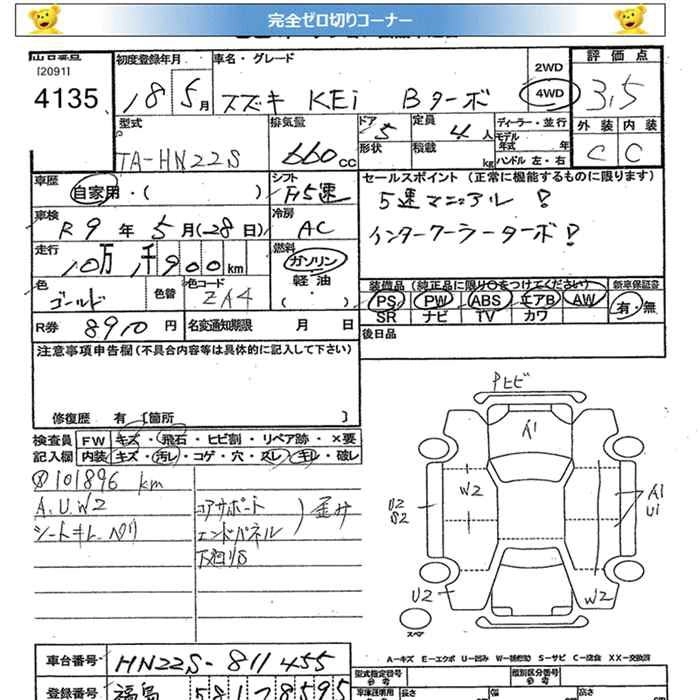 完全ゼロ切りコーナー
[2091]
4135
初度登録年月
18 5月
車名・グレード
スズキ KEi Bターボ
2WD
4WD
評価点
3.5
外装 内装
C C
型式
TA-HN22S
排気量
660cc
ドア 5
形状
定員 4人
積載 kg
ディーラー・並行
モデル年式 年
ハンドル 左・右
車歴
自家用・( )
シフト
F5速
セールスポイント (正常に機能するものに限ります)
5速マニュアル!
インタークーラーターボ!
車検
R9年 5月(28日)
冷房
AC
走行
10万1千900km
燃料
ガソリン
軽油
・( )
色
ゴールド
色替
色コード
ZA4
装備品(純正品に限り○をつけてください)
PS PW ABS エアB AW
SR ナビ TV カワ
新車保証書
有・無
R券 8910円
名変通知期限 月 日
後日品
注意事項申告欄(不具合内容等は具体的に記入して下さい)
修復歴 有 [箇所 ]
検査員記入欄
FW キズ・飛石・ヒビ割・リペア跡・×要
内装 キズ・汚レ・コゲ・穴・スレ・キレ・破レ
101896 km
A.U.W2
コアサポート
エンドパネル
歪み
下廻りS
Pヒビ
A1
W2
U2
S2
A1
U1
U2
W2
スペア
A-キズ E-エクボ U-凹み W-補修跡 S-サビ C-腐食 XX-交換済
車台番号 HN22S-811455
登録番号 福島 581 78595
型式指定番号
類別区分番号
長さ
幅
高さ